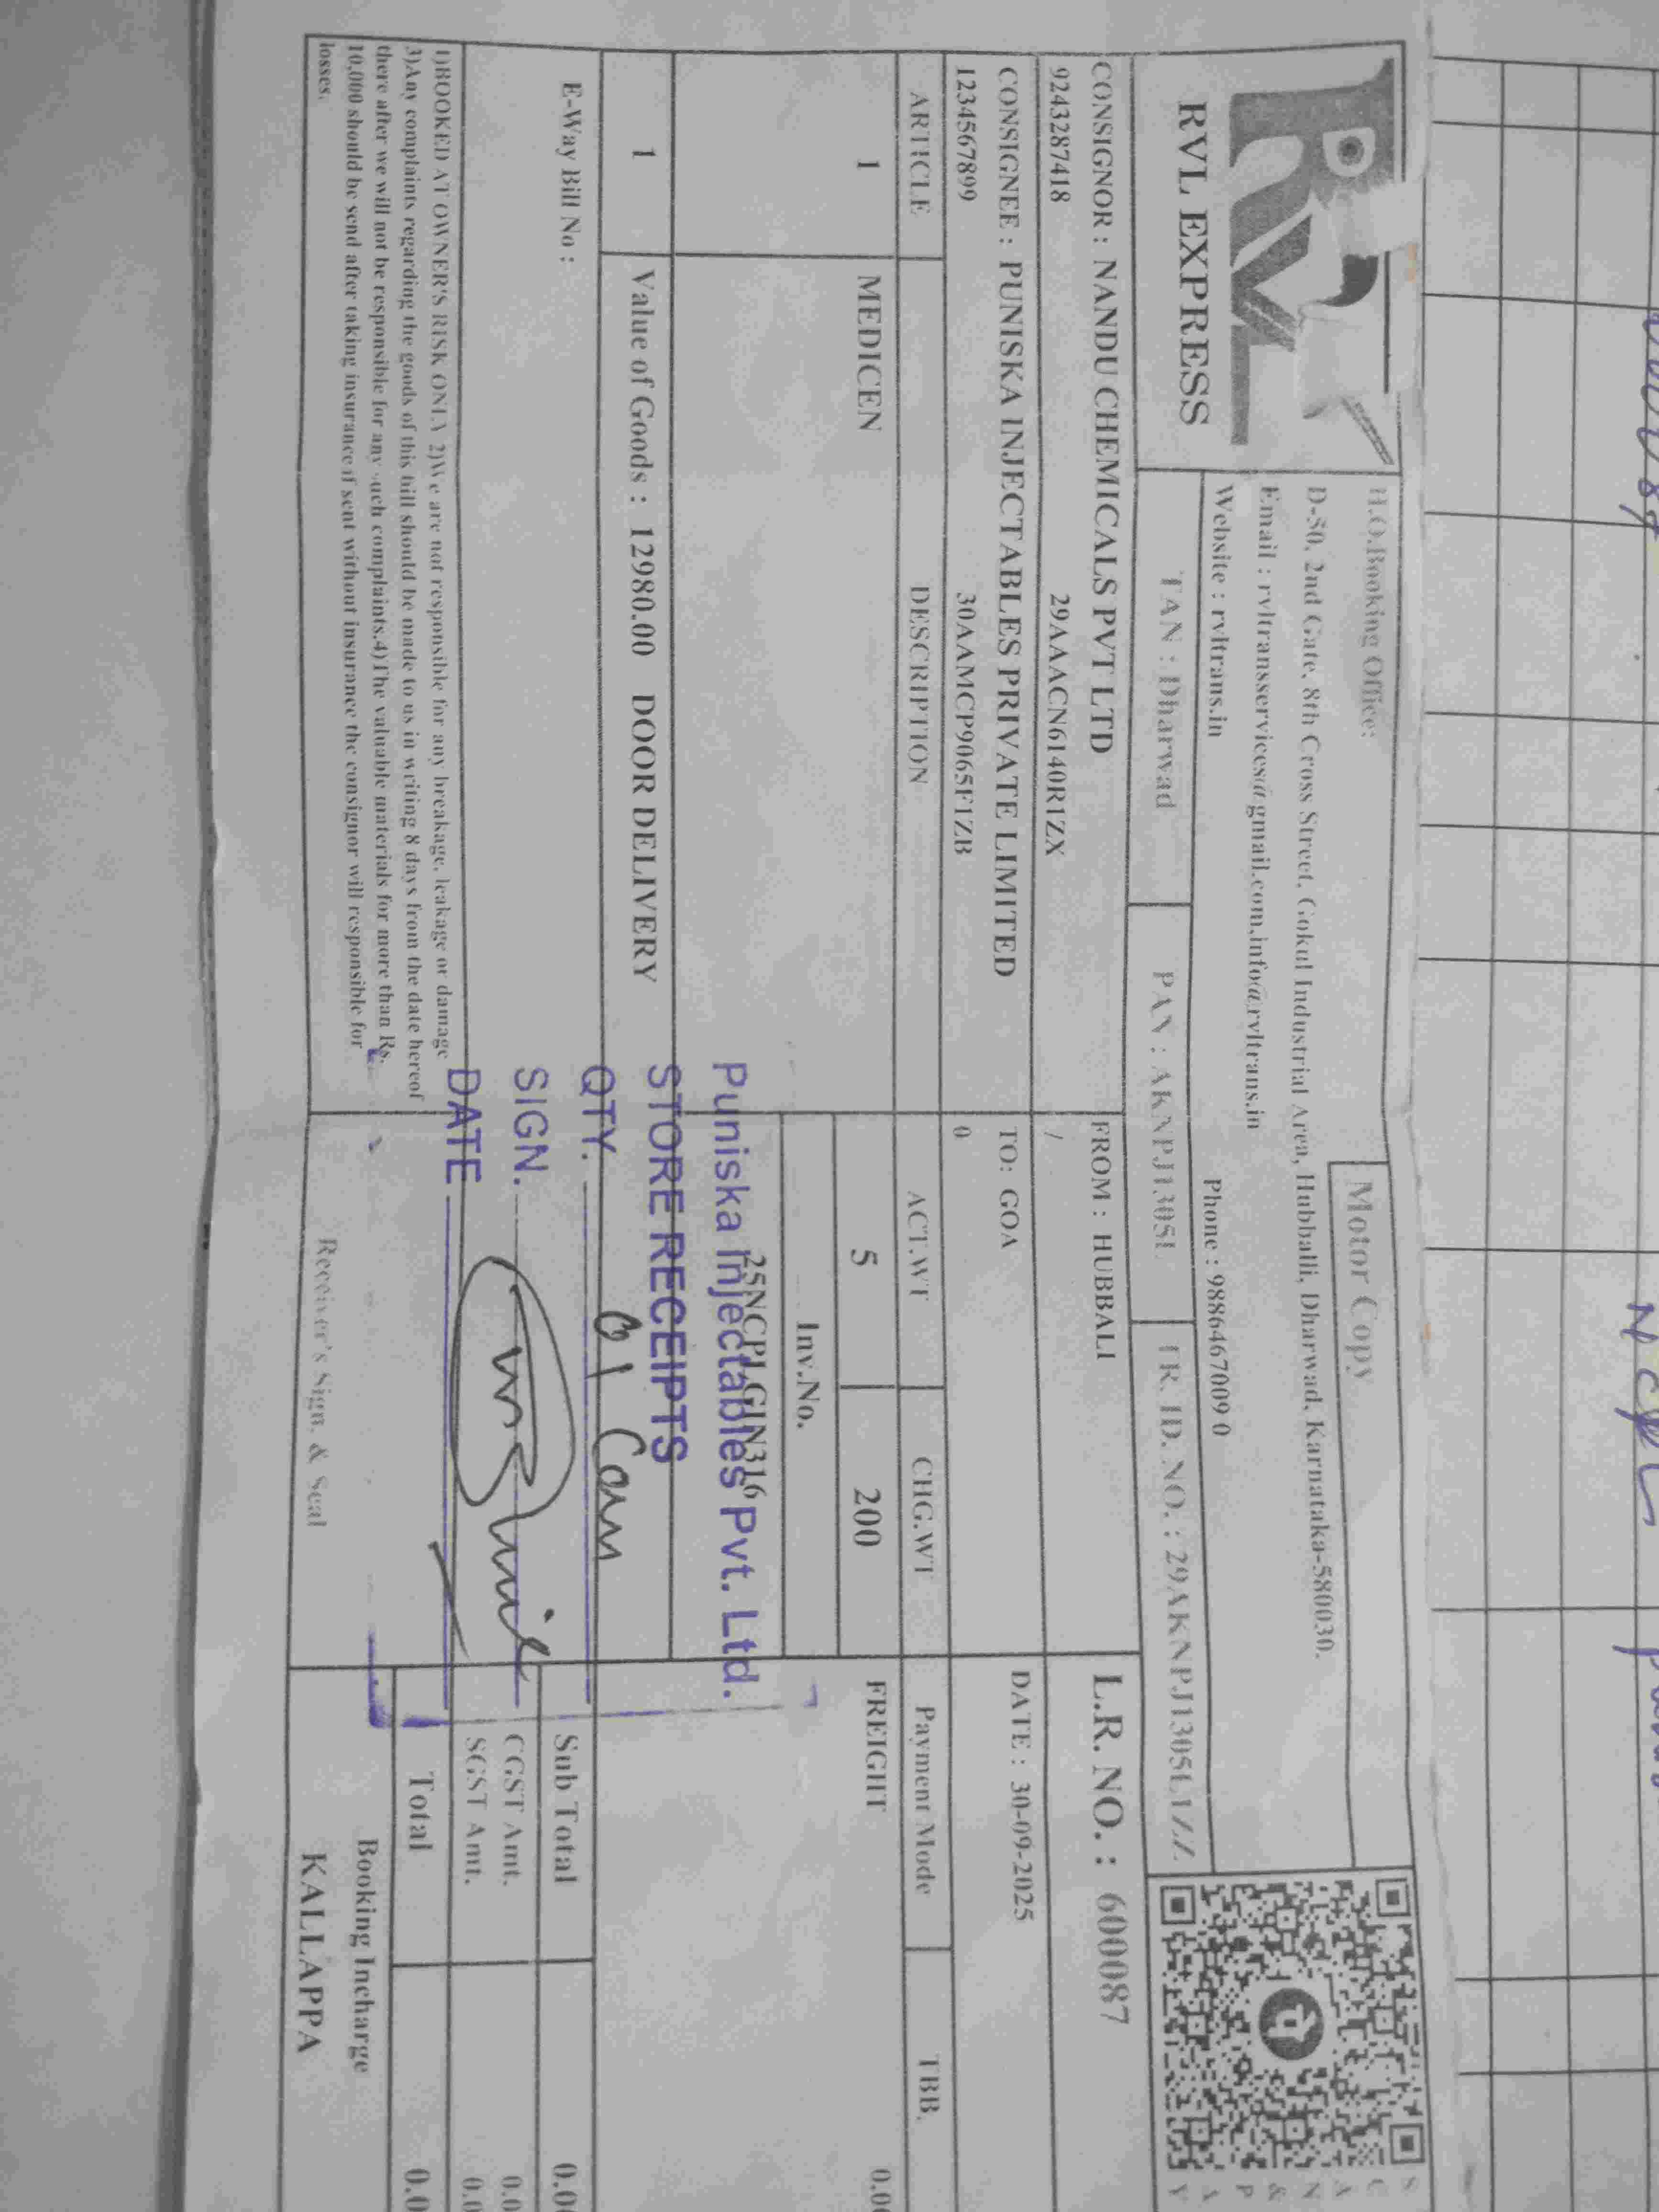 RVL EXPRESS
H.O.Booking Office:
Motor Copy
D-50, 2nd Gate, 8th Cross Street, Gokul Industrial Area, Hubballi, Dharwad, Karnataka-580030.
Email : rvltransservices@gmail.com,info@rvltrans.in
Website : rvltrans.in
Phone : 9886467009 0
SCAN & PAY
TAN : Dharwad
PAN : AKNPJ1305L
TR. ID. NO. : 29AKNPJ1305L1ZZ
CONSIGNOR : NANDU CHEMICALS PVT LTD
FROM : HUBBALI
L.R. NO. : 600087
9243287418 29AAACN6140R1ZX
/
CONSIGNEE : PUNISKA INJECTABLES PRIVATE LIMITED
TO: GOA
DATE : 30-09-2025
1234567899 30AAMCP9065F1ZB
0
ARTICLE DESCRIPTION ACT.WT CHG.WT Payment Mode TBB.
1 MEDICEN 5 200 FREIGHT 0.0
Inv.No.
25NCPLGIN316
Puniska Injectables Pvt. Ltd.
STORE RECEIPTS
1 Value of Goods : 12980.00 DOOR DELIVERY
QTY. 01 Can
E-Way Bill No :
SIGN.
DATE
Sub Total 0.0
CGST Amt. 0.0
SGST Amt. 0.0
Total 0.0
1)BOOKED AT OWNER'S RISK ONLY 2)We are not responsible for any breakage, leakage or damage
3)Any complaints regarding the goods of this bill should be made to us in writing 8 days from the date hereof
there after we will not be responsible for any such complaints.4)The valuable materials for more than Rs.
10,000 should be send after taking insurance if sent without insurance the consignor will responsible for
losses.
Receiver's Sign. & Seal
Booking Incharge
KALLAPPA